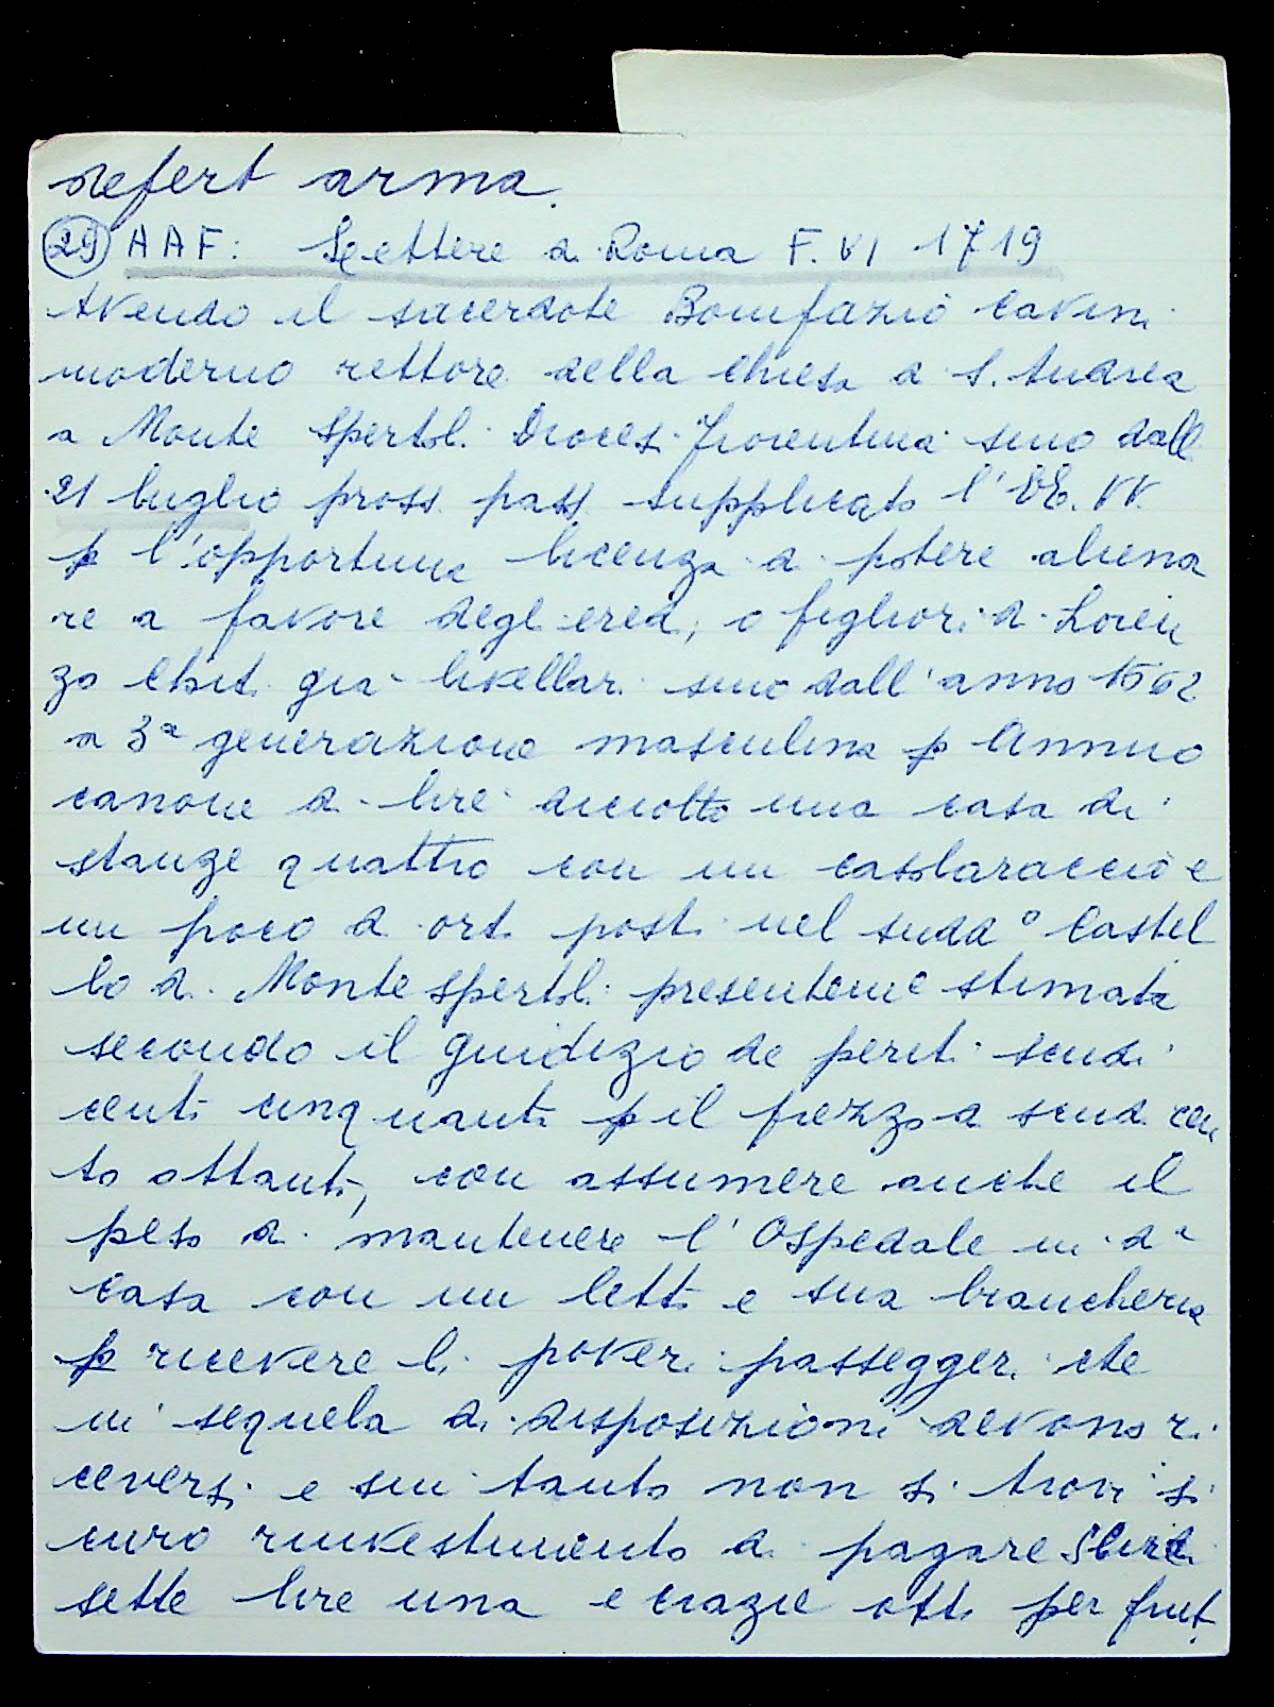 refert arma.
29 AAF: Lettere di Roma F. VI 1719
Avendo il sacerdote Bonifazio Cavini
moderno rettore della Chiesa di S. Andrea
a Monte Spertoli Diocesi Fiorentina sino dall
21 luglio pross. pass. supplicato l'EE. VV.
p l'opportuna licenza di potere aliena
re a favore degli eredi, o figliori di Loren
zo Chiti già livellari sino dall'anno 1562
a 3ª generazione masculina p Annuo
canone di lire diciotto una casa di
stanze quattro con un casolaraccio e
un poco di orto posti nel sudd° Castel
lo di Monte Spertoli presenteme stimata
secondo il giudizio de periti scudi
cento cinquanta p il prezzo di scudi cen
to ottanta, con assumere anche il
peso di mantenere l'Ospedale in dª
casa con un letto e sua biancheria
p ricevere li poveri passeggeri che
in sequela di disposizioni devono ri
ceversi e sin tanto non si trovi si
curo rinvestimento di pagare Scudi
sette lire una e crazie otto per frut.